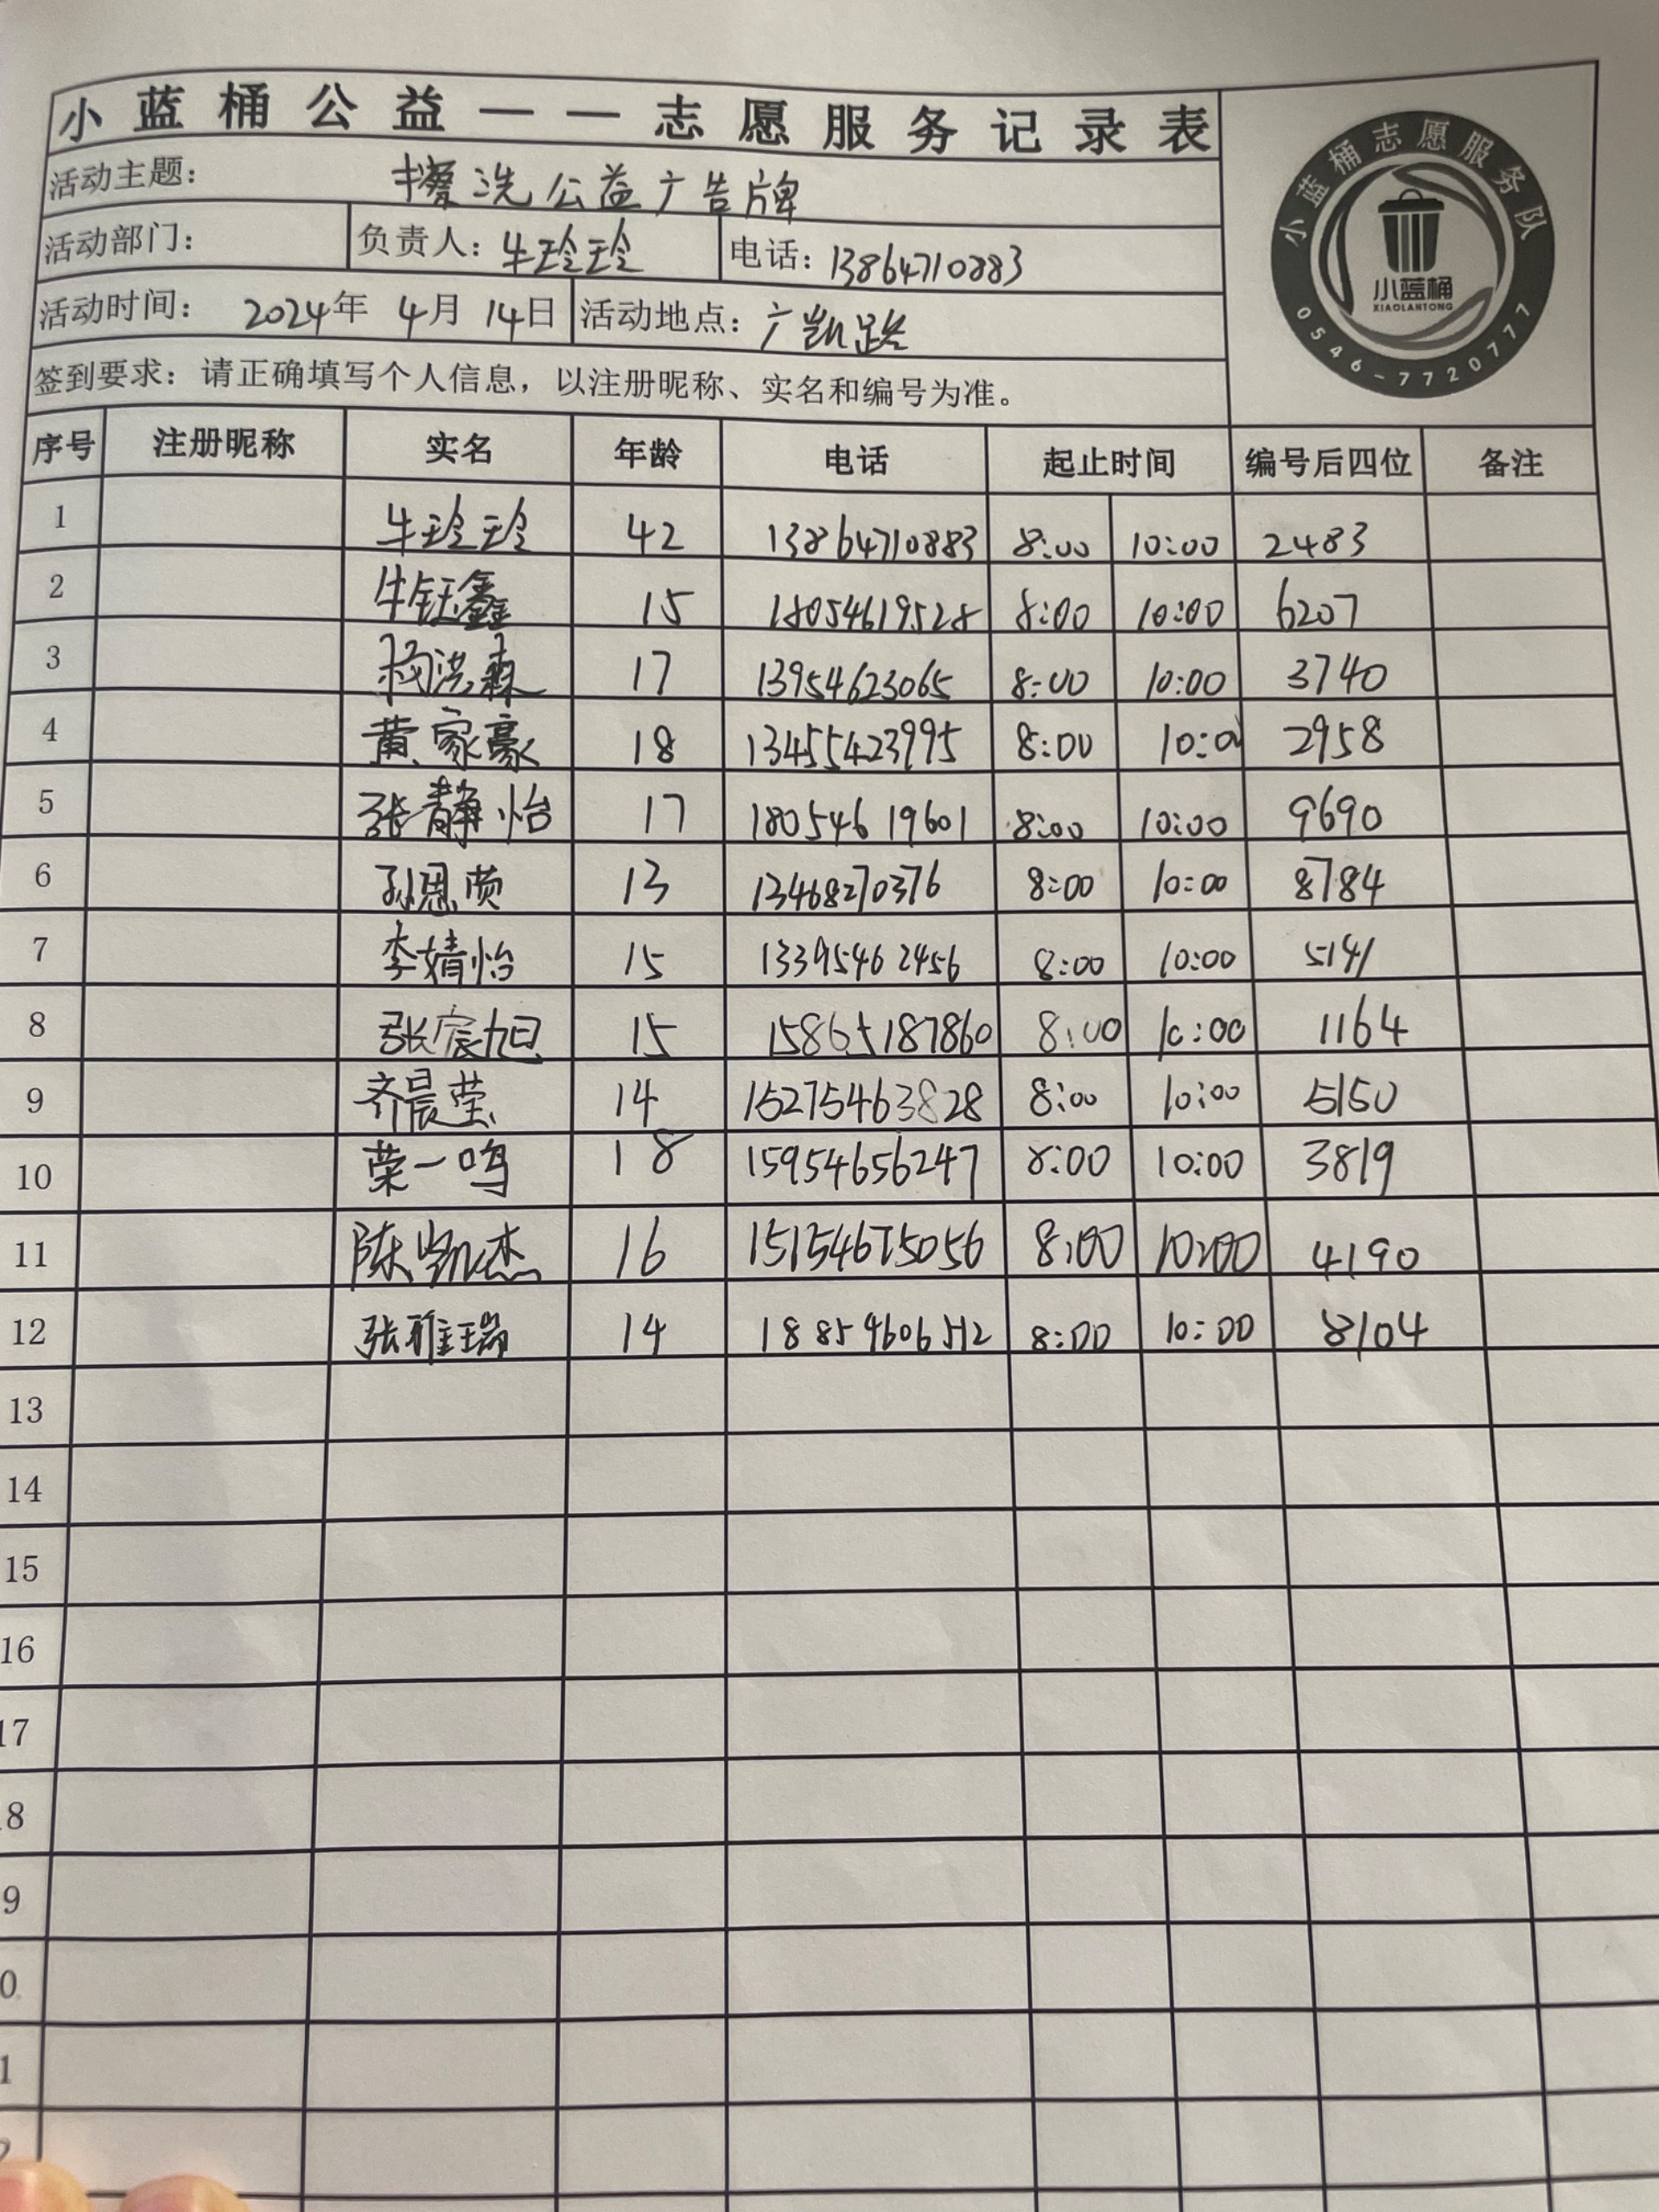 小蓝桶公益——志愿服务记录表
活动主题： 擦洗公益广告牌
活动部门： 负责人：牛玲玲 电话：13864710883
活动时间： 2024年 4月 14日 活动地点：广凯路
签到要求：请正确填写个人信息，以注册昵称、实名和编号为准。
小蓝桶志愿服务队
小蓝桶
XIAOLANTONG
0546-7720777
序号 注册昵称 实名 年龄 电话 起止时间 编号后四位 备注
1 牛玲玲 42 13864710883 8:00 10:00 2483
2 牛钰鑫 15 18054619528 8:00 10:00 6207
3 杨洪森 17 13954623065 8:00 10:00 3740
4 黄家豪 18 13455423995 8:00 10:00 2958
5 张静怡 17 18054619601 8:00 10:00 9690
6 孙恩 13 13468270376 8:00 10:00 8784
7 李婧怡 15 13395462456 8:00 10:00 5141
8 张宸旭 15 15865187860 8:00 10:00 1164
9 齐晨莹 14 15275463828 8:00 10:00 5150
10 荣一鸣 18 15954656247 8:00 10:00 3819
11 陈凯杰 16 15154675056 8:00 10:00 4190
12 张雅瑞 14 18859606512 8:00 10:00 8104
13
14
15
16
17
8
9
0
1
2